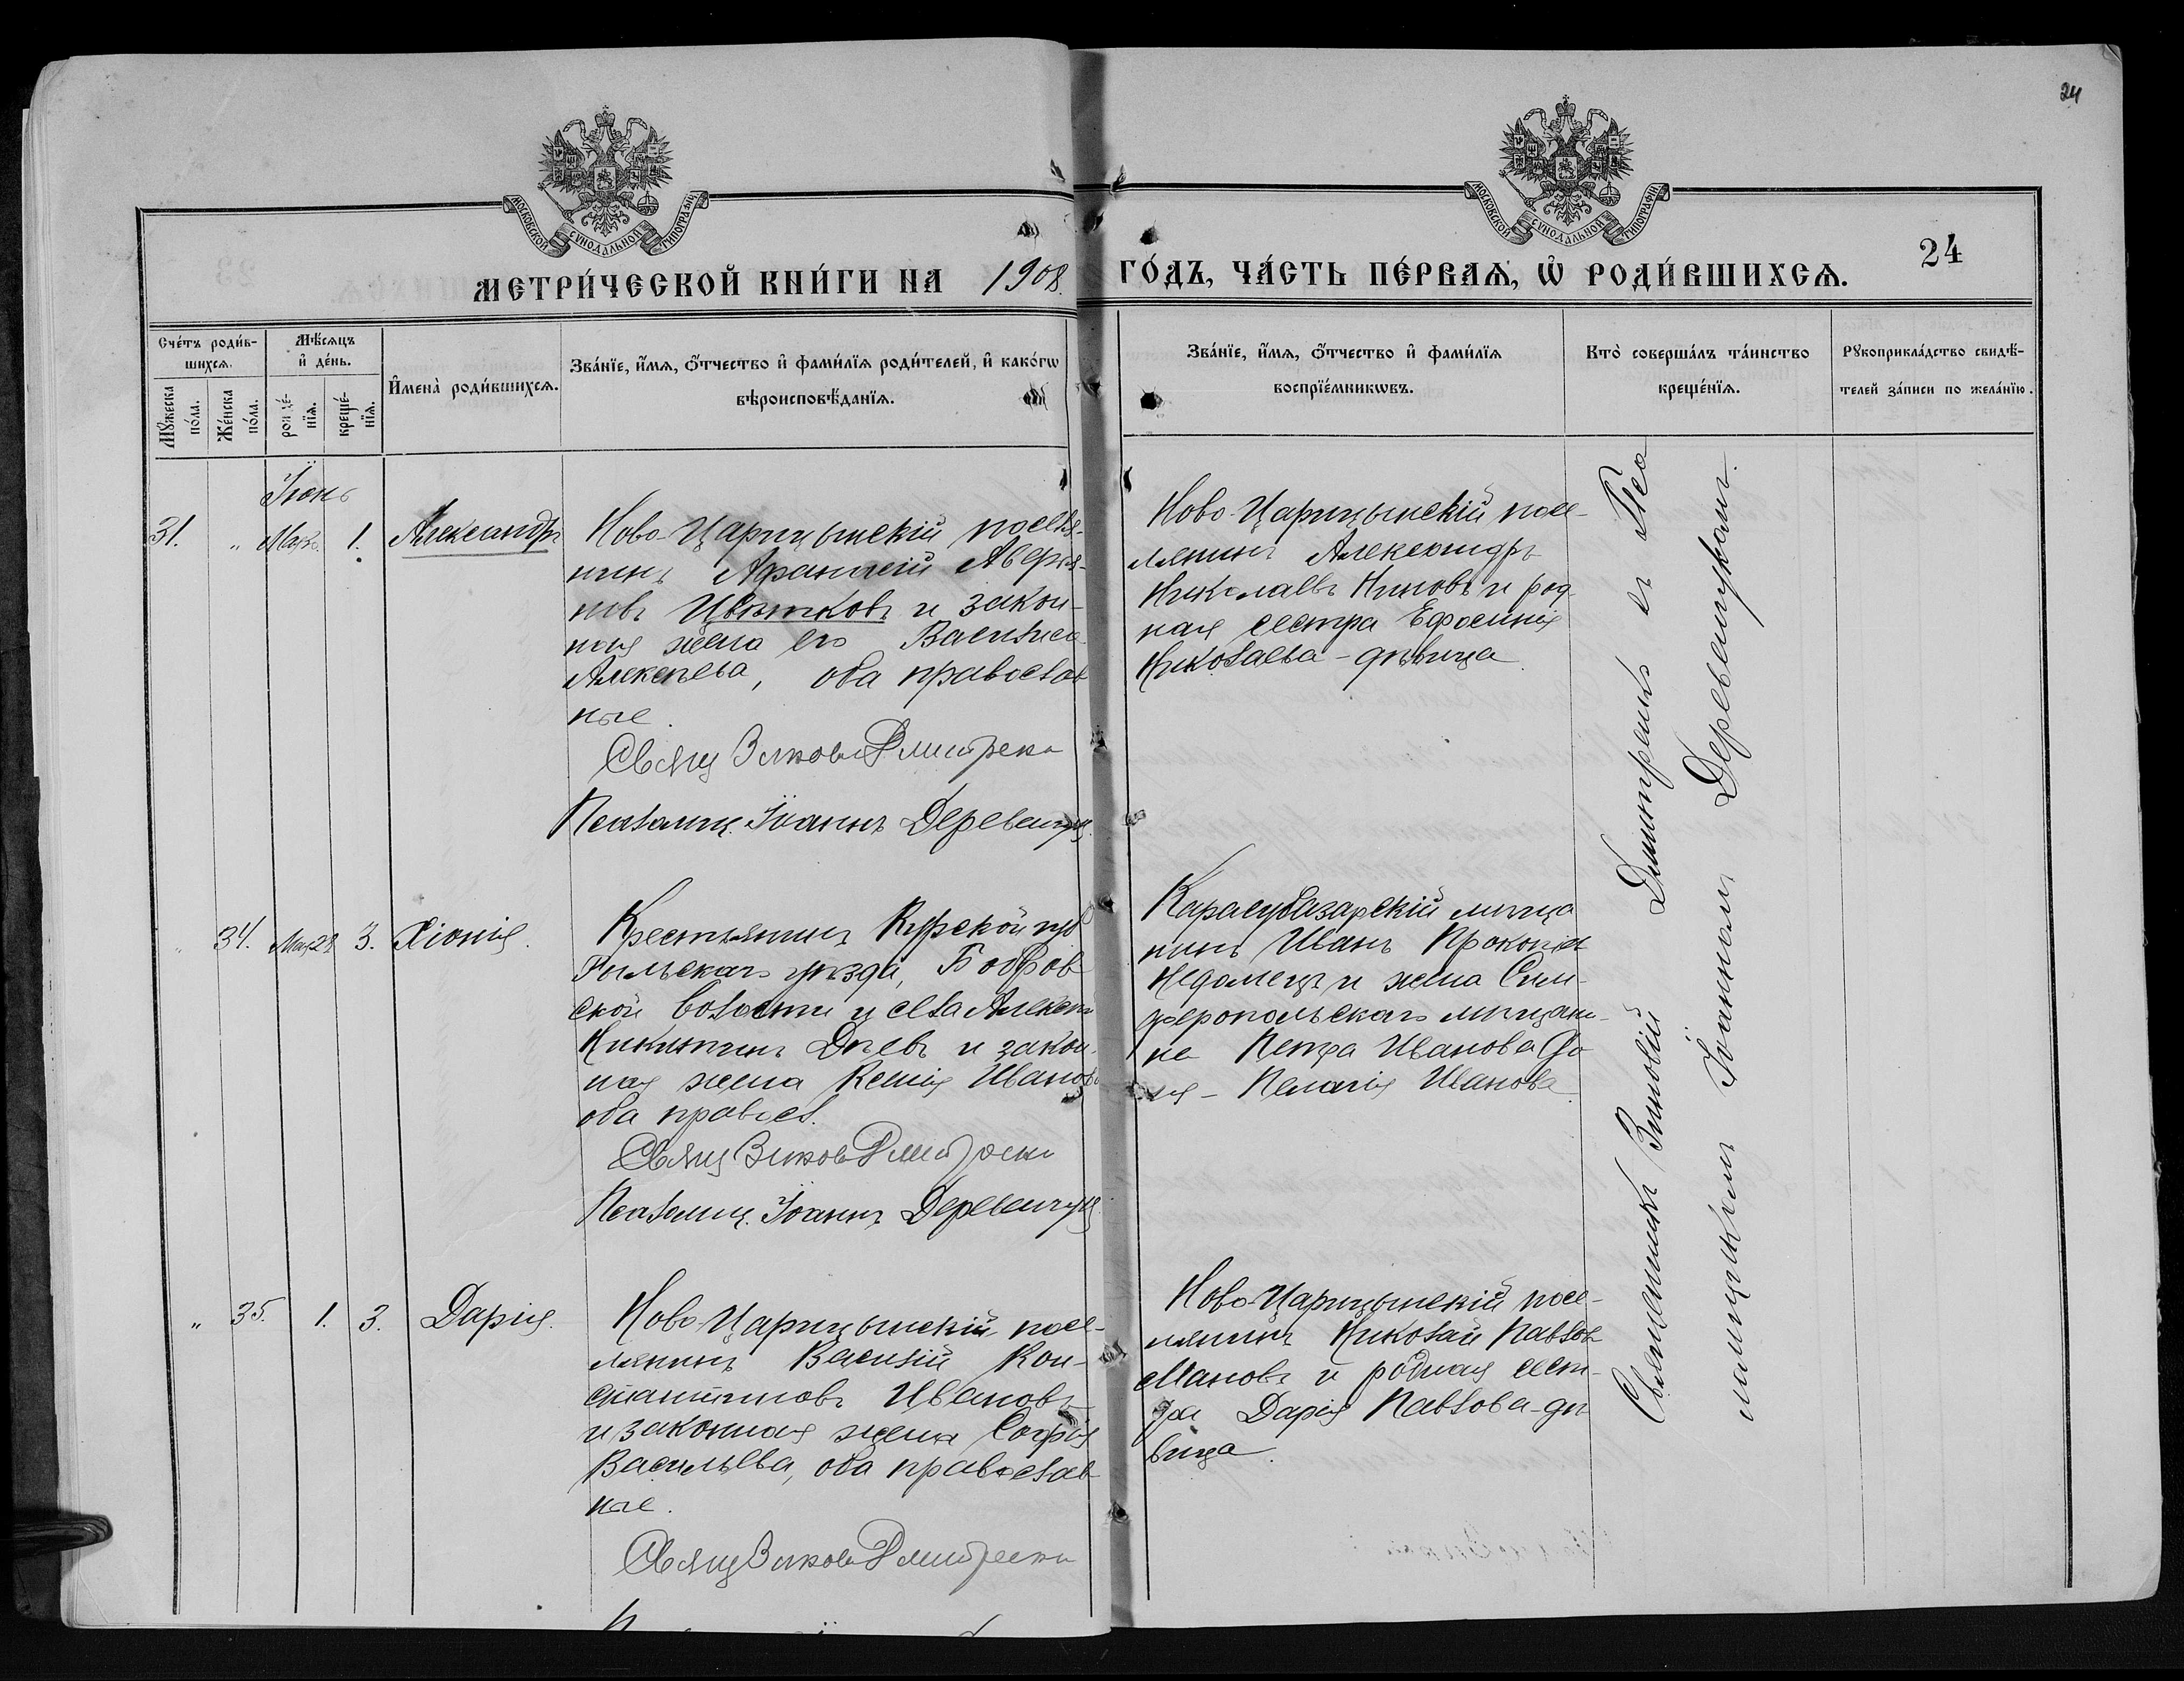 24
МОСКОВСКОЙ СУНОДАЛЬНОЙ ТИПОГРАФІИ
МОСКОВСКОЙ СУНОДАЛЬНОЙ ТИПОГРАФІИ
МЕТРИ́ЧЕСКОЙ КНИ́ГИ НА 1908.
ГО́ДЪ, ЧА́СТЬ ПЕ́РВАѦ, Ѡ҆ РОДИ́ВШИХСѦ.
24
Сче́тъ роди́в-
шихсѧ.
Мꙋ́жеска
по́ла.
Же́нска
по́ла.
Мѣ́сѧцъ
и҆ де́нь.
рожде́-
нїѧ.
креще́-
нїѧ.
И҆мена̀ роди́вшихсѧ.
Зва́нїе, и҆́мѧ, ѻ҆́тчество и҆ фами́лїѧ роди́телей, и҆ како́гѡ
вѣроисповѣ́данїѧ.
Зва́нїе, и҆́мѧ, ѻ҆́тчество и҆ фами́лїѧ
воспрїе́мникѡвъ.
Кто̀ соверша́лъ та́инство
креще́нїѧ.
Рꙋкоприкла́дство свидѣ́-
телей за́писи по жела́нїю.
Іюнь
31. " 1. Александръ
Ново-Царицынскій поселя-
нинъ Афанасій Аверья-
новъ Цвѣтковъ и закон-
ная жена его Василиса
Алексѣева, оба православ
ные.
Свящ Зиновій Дмитренко
Псаломщ. Іоаннъ Деревенчук
Ново-Царицынскій посе-
лянинъ Александръ
Николаевъ Ниновъ и род
ная сестра Ефосинія
Николаева-дѣвица.
" 34. Мая 28 3. Хіонія.
Крестьянинъ Курской губ
Рыльскаго уѣзда, Бобров
ской волости и села Алексѣй
Никитинъ Дѣевъ и закон
ная жена Ксенія Иванова
оба правосл.
Свящ Зиновій Дмитренко
Псаломщ. Іоаннъ Деревенчук
Карасубазарскій мѣща
нинъ Иванъ Прокопіев
Недомецъ и жена Сим-
феропольскаго мѣщани-
на Петра Иванова
Пелагія Иванова.
" 35. 1. 3. Дарія.
Ново-Царицынскій посе-
лянинъ Василій Кон-
стантиновъ Ивановъ
и законная жена Софія
Васильева, оба православ
ные.
Свящ Зиновій Дмитренко
Ново-Царицынскій посе-
лянинъ Николай Павлов
Мановъ и родная сест-
ра Дарія Павлова-дѣ
вица.
Священникъ Зиновій Димитренко съ Пса
ломщикомъ Іоанномъ Деревенчукомъ.